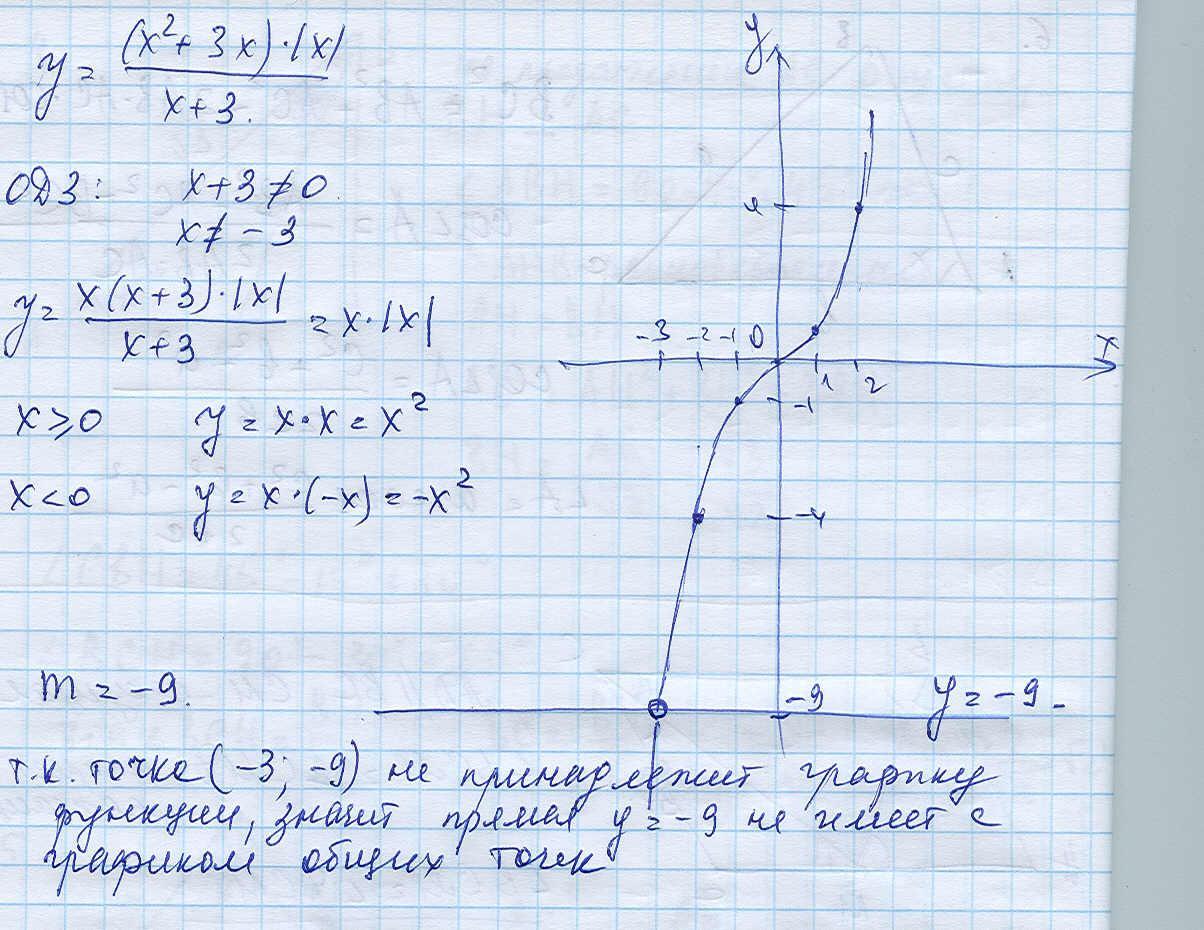 y = (x² + 3x)·|x| / x+3.
ОДЗ: x+3 ≠ 0.
x ≠ -3
y = x(x+3)·|x| / x+3 = x·|x|
x ≥ 0 y = x·x = x²
x < 0 y = x·(-x) = -x²
y
4
-3 -2 -1 0 x
1 2
-1
-4
m = -9.
-9 y = -9.
т.к. точка (-3; -9) не принадлежит графику
функции, значит прямая y = -9 не имеет с
графиком общих точек